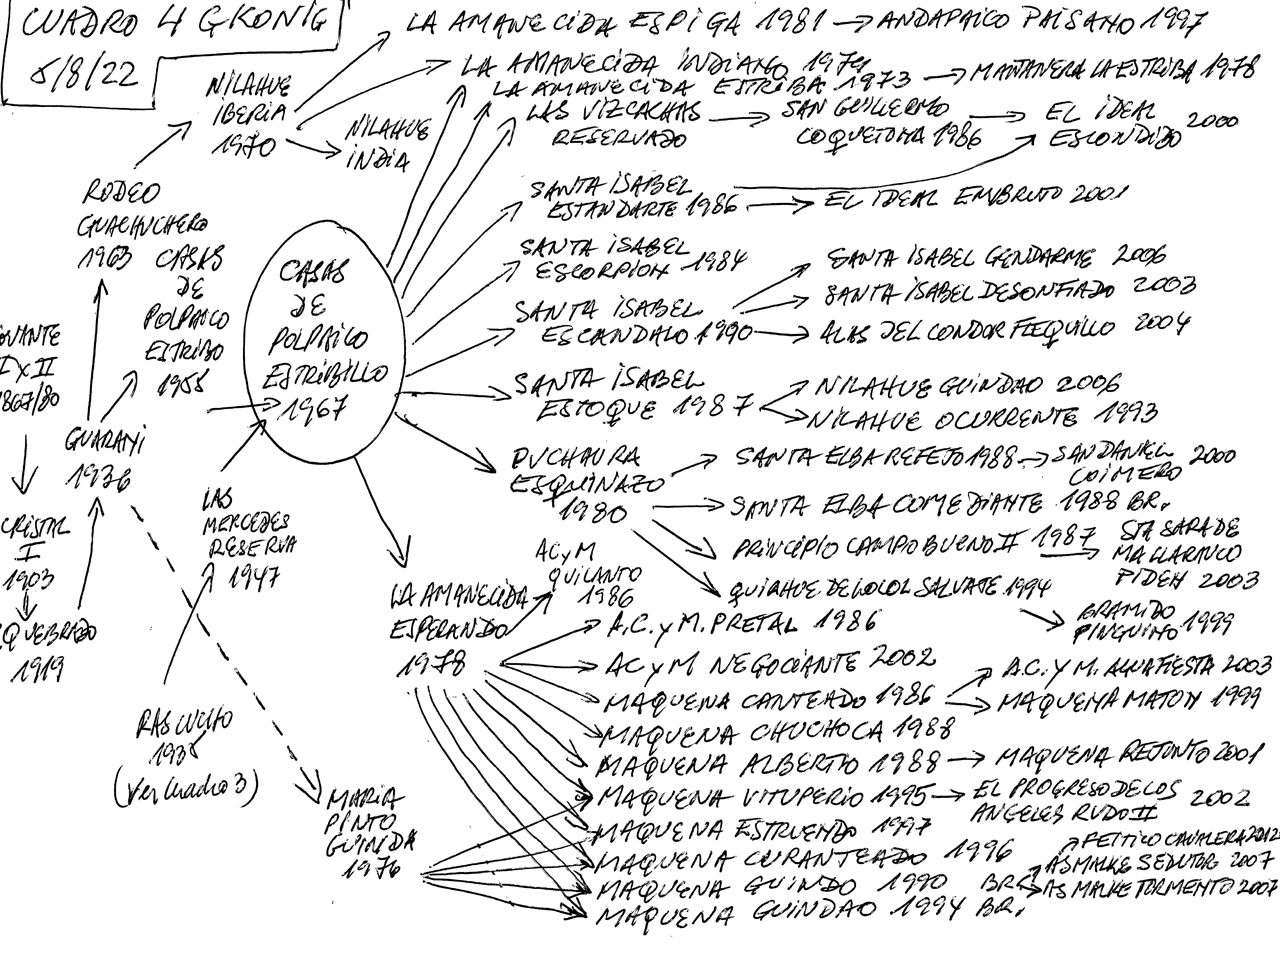 CUADRO 4 GKONIG
5/8/22
LA AMANECIDA ESPIGA 1981 → ANDAPAICO PAISANO 1997
NILAHUE
IBERIA
1970
LA AMANECIDA INDIANO 1974
LA AMANECIDA ESTRIBA 1973 → MANTANERA LA ESTRIBA 1978
NILAHUE
INDIA
LAS VIZCACHAS
RESERVADO
SAN GUILLERMO
COQUETONA 1986
EL IDEAL
ESCONDIDO 2000
RODEO
GUACHUCHERO
1963
SANTA ISABEL
ESTANDARTE 1986 → EL IDEAL EMBRUTO 2001
CASAS
DE
POLPAICO
ESTRIBO
1955
CASAS
DE
POLPAICO
ESTRIBILLO
1967
SANTA ISABEL
ESCORPION 1984
SANTA ISABEL
ESCANDALO 1990
SANTA ISABEL GENDARME 2006
SANTA ISABEL DESONFIADO 2003
ALAS DEL CONDOR FLEQUILLO 2004
SANTA ISABEL
ESTOQUE 1987
NILAHUE GUINDAO 2006
NILAHUE OCURRENTE 1993
I x II
1867/80
CRISTAL
I
1903
QUEBRADO
1919
GUARANI
1936
LAS
MERCEDES
RESERVA
1947
RASCUCHO
1935
(Ver cuadro 3)
PUCHAURA
ESQUINAZO
1980
SANTA ELBA REFEJO 1988 → SAN DANIEL
COIMERO 2000
SANTA ELBA COMEDIANTE 1988 BR.
PRINCIPIO CAMPO BUENO II 1987
STA SARA DE
MALLARAUCO
PIDEN 2003
QUIAHUE DE LOLOL SALVATE 1994
BRAMIDO
PINGUINO 1999
LA AMANECIDA
ESPERANDO
1978
AC y M
QUILANTO
1986
A.C. y M. PRETAL 1986
AC y M NEGOCIANTE 2002
MAQUENA CANTEADO 1986
A.C. Y M. AGUAFIESTA 2003
MAQUENA MATON 1999
MAQUENA CHUCHOCA 1988
MAQUENA ALBERTIO 1988 → MAQUENA REJUNTO 2001
MAQUENA VITUPERIO 1995 → EL PROGRESO DE LOS
ANGELES RUDO II 2002
MAQUENA ESTRUENDO 1997
MAQUENA CURANTEADO 1996
MAQUENA GUINDO 1990 BR
CAVALERA 2012
AS MALKE SEDUTOR 2007
AS MALKE TORMENTO 2007
MAQUENA GUINDAO 1994 BR.
MARIA
PINTO
GUINDA
1976